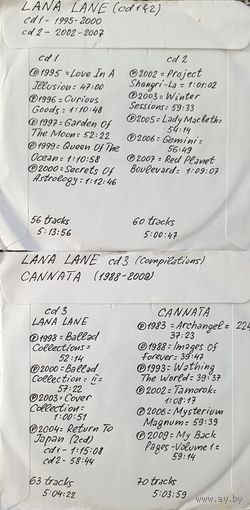 LANA LANE (cd1&2)
cd1 - 1995-2000
cd2 - 2002-2007
cd1
℗1995=Love In A
Illusion: 47:00
℗1996=Curious
Goods = 1:10:48
℗1997=Garden Of
The Moon = 52:22
℗1999=Queen Of The
Ocean = 1:10:58
℗2000=Secrets Of
Astrology = 1:12:46
56 tracks
5:13:56
cd 2
℗2002 = Project
Shangri-La = 1:01:02
℗2003 = Winter
Sessions = 59:33
℗2005=Lady Macbeth=
54:14
℗2006= Gemini=
56:49
℗2007= Red Planet
Boulevard = 1:09:07
60 tracks
5:00:47
LANA LANE cd3 (compilations)
CANNATA (1988-2009)
cd3
LANA LANE
℗1998=Ballad
Collections=
52:14
℗2000=Ballad
Collection: ii=
57:22
℗2003=Cover
Collection=
1:00:51
℗2004=Return To
Japan (2cd)
cd1-1:15:08
cd2-58:44
63 tracks
5:04:22
CANNATA
℗1983= Archangel = 224
37:23
℗1988=Images Of
Forever = 39:47
℗1993= Wathing
The World = 39:37
℗2002=Tamorok=
1:08:17
℗2006=Mysterium
Magnum= 59:39
℗2009=My Back
Pages-Volume 1=
59:14
70 tracks
5:03:59
www.ay.by